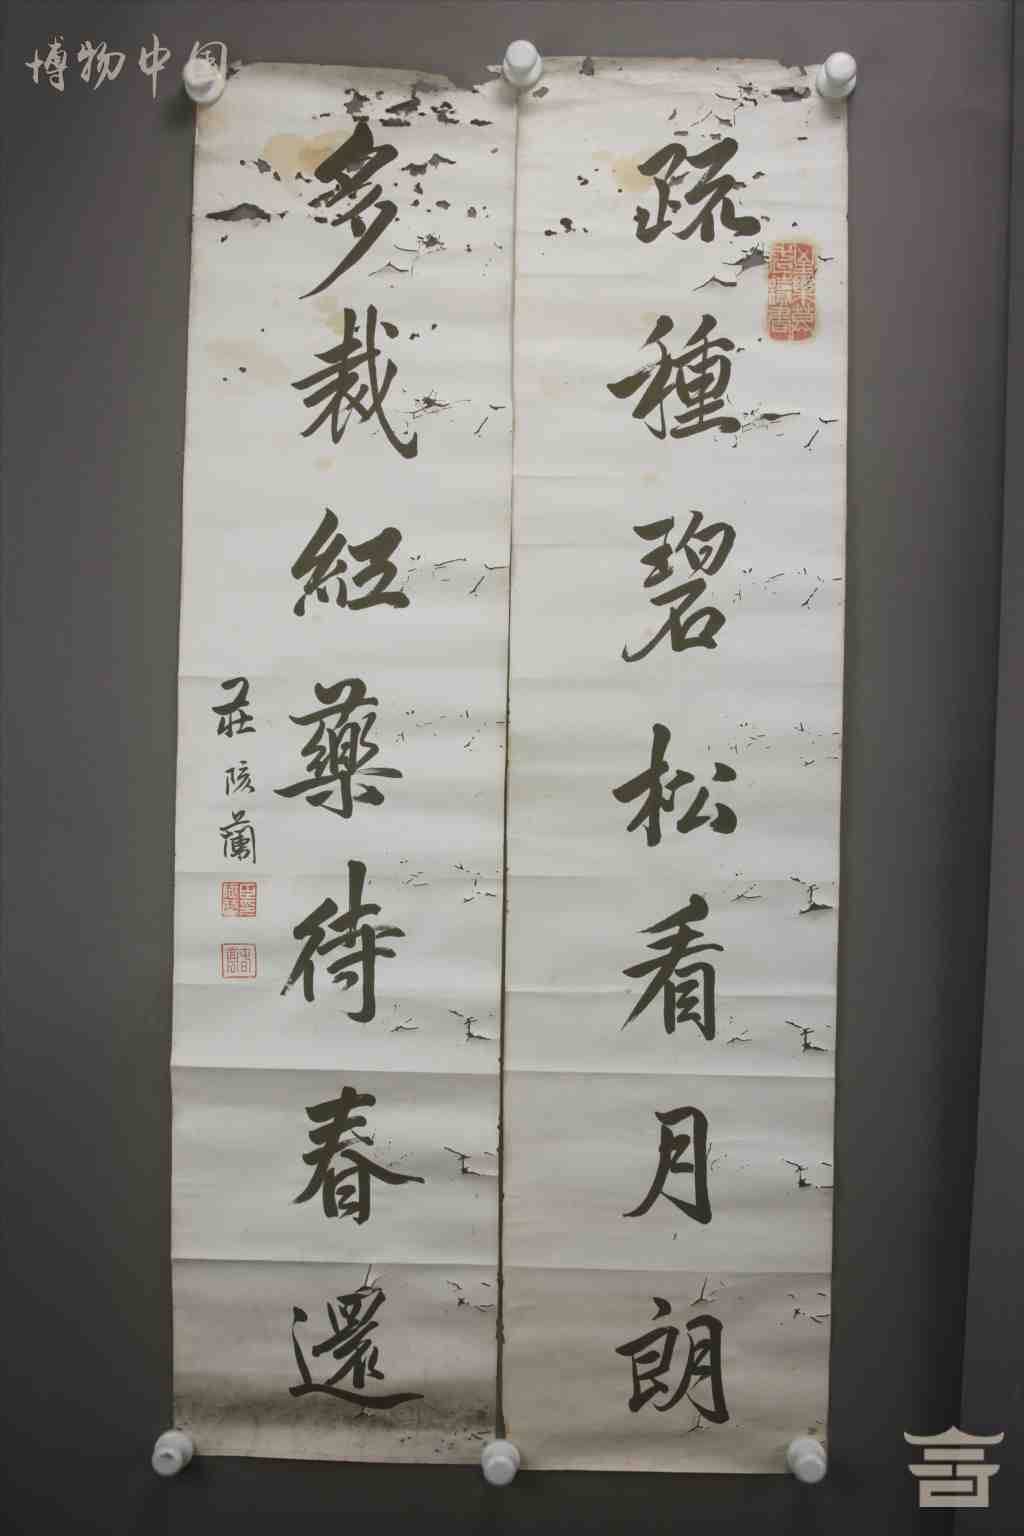 博物中国
疏種碧松看月朗
多裁紅藥待春還
莊陔蘭